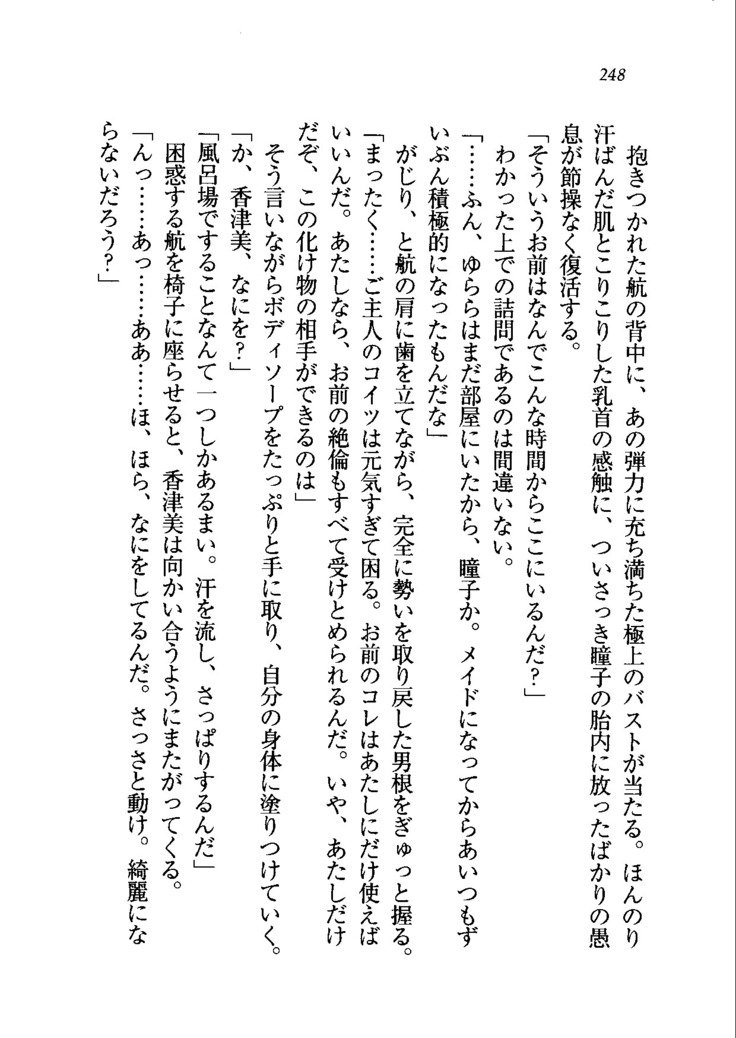 248
抱きつかれた航の背中に、あの弾力に充ち満ちた極上のバストが当たる。ほんのり
汗ばんだ肌とこりこりした乳首の感触に、ついさっき瞳子の胎内に放ったばかりの愚
息が節操なく復活する。
「そういうお前はなんでこんな時間からここにいるんだ?」
わかった上での詰問であるのは間違いない。
「……ふん、ゆららはまだ部屋にいたから、瞳子か。メイドになってからあいつもず
いぶん積極的になったもんだな」
がじり、と航の肩に歯を立てながら、完全に勢いを取り戻した男根をぎゅっと握る。
「まったく……ご主人のコイツは元気すぎて困る。お前のコレはあたしにだけ使えば
いいんだ。あたしなら、お前の絶倫もすべて受けとめられるんだ。いや、あたしだけ
だぞ、この化け物の相手ができるのは」
そう言いながらボディソープをたっぷりと手に取り、自分の身体に塗りつけていく。
「か、香津美、なにを?」
「風呂場ですることなんて一つしかあるまい。汗を流し、さっぱりするんだ」
困惑する航を椅子に座らせると、香津美は向かい合うようにまたがってくる。
「んっ……あっ……ああ……ほ、ほら、なにをしてるんだ。さっさと動け。綺麗にな
らないだろう?」